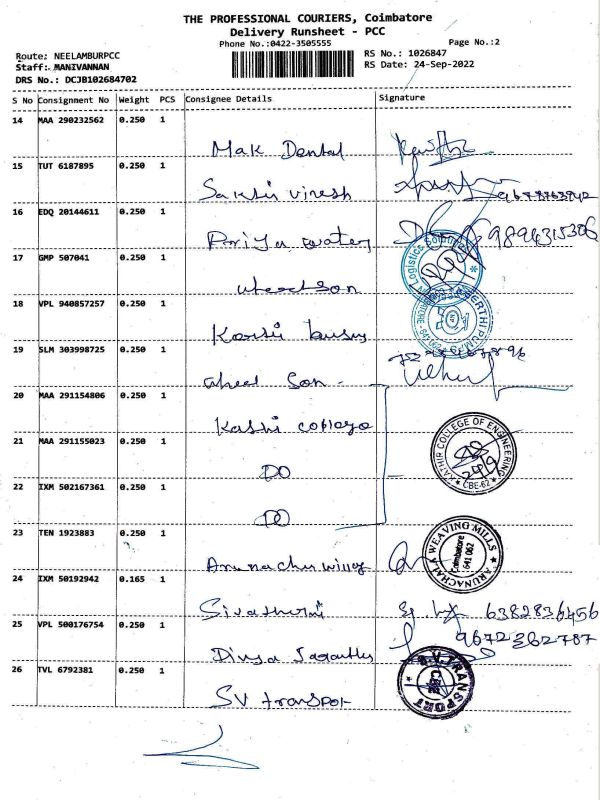 THE PROFESSIONAL COURIERS, Coimbatore
Delivery Runsheet - PCC
Phone No.:0422-3505555
Page No.:2
Route: NEELAMBURPCC
RS No.: 1026847
Staff: MANIVANNAN
RS Date: 24-Sep-2022
DRS No.: DCJB102684702
S No Consignment No Weight PCS Consignee Details Signature
14 MAA 290232562 0.250 1
Mak Dental
15 TUT 6187895 0.250 1
Sakthi viresh
16 EDQ 20144611 0.250 1
Priya water 9894315306
17 GMP 507041 0.250 1
Logistics
wheel son
18 VPL 940857257 0.250 1
19 SLM 303998725 0.250 1
wheel son
20 MAA 291154806 0.250 1
21 MAA 291155023 0.250 1
KATHIR COLLEGE OF ENGINEERING
* CBE-62 *
DO
22 IXM 502167361 0.250 1
DO
23 TEN 1923883 0.250 1
ARUNACHALA WEAVING MILLS
Coimbatore
641 062
24 IXM 50192942 0.165 1
6382836456
25 VPL 500176754 0.250 1
9672362787
Divya
26 TVL 6792381 0.250 1
S.V. TRANSPORT
CBE
SV transpor